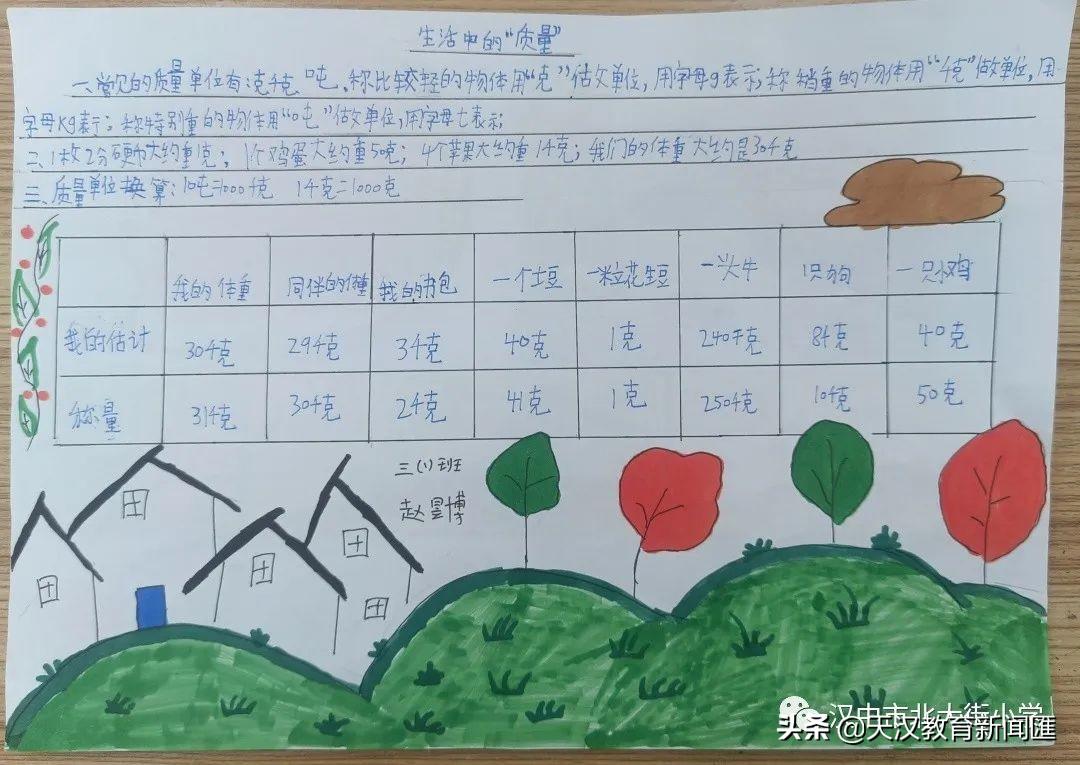 生活中的“质量”
一、常见的质量单位有：克千克 吨。称比较轻的物体用“克”做单位，用字母g表示；称稍重的物体用“千克”做单位，用
字母Kg表示；称特别重的物体用“吨”做单位，用字母t表示；
二、1枚2分硬币大约重1克；1个鸡蛋大约重50克；4个苹果大约重1千克；我们的体重大约是30千克
三、质量单位换算：1吨=1000千克 1千克=1000克
我的体重 同伴的体重 我的书包 一个土豆 一粒花生豆 一头牛 1只狗 一只小鸡
我的估计 30千克 29千克 3千克 40克 1克 240千克 8千克 40克
称量 31千克 30千克 2千克 41克 1克 250千克 10千克 50克
三(1)班
赵昱博
汉中市北大街小学
头条 @天汉教育新闻匯